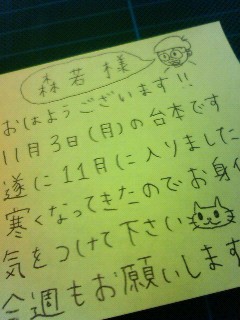 森若様
おはようございます!!
11月3日(月)の台本です
遂に11月に入りました
寒くなってきたのでお身体
気をつけて下さい
今週もお願いします